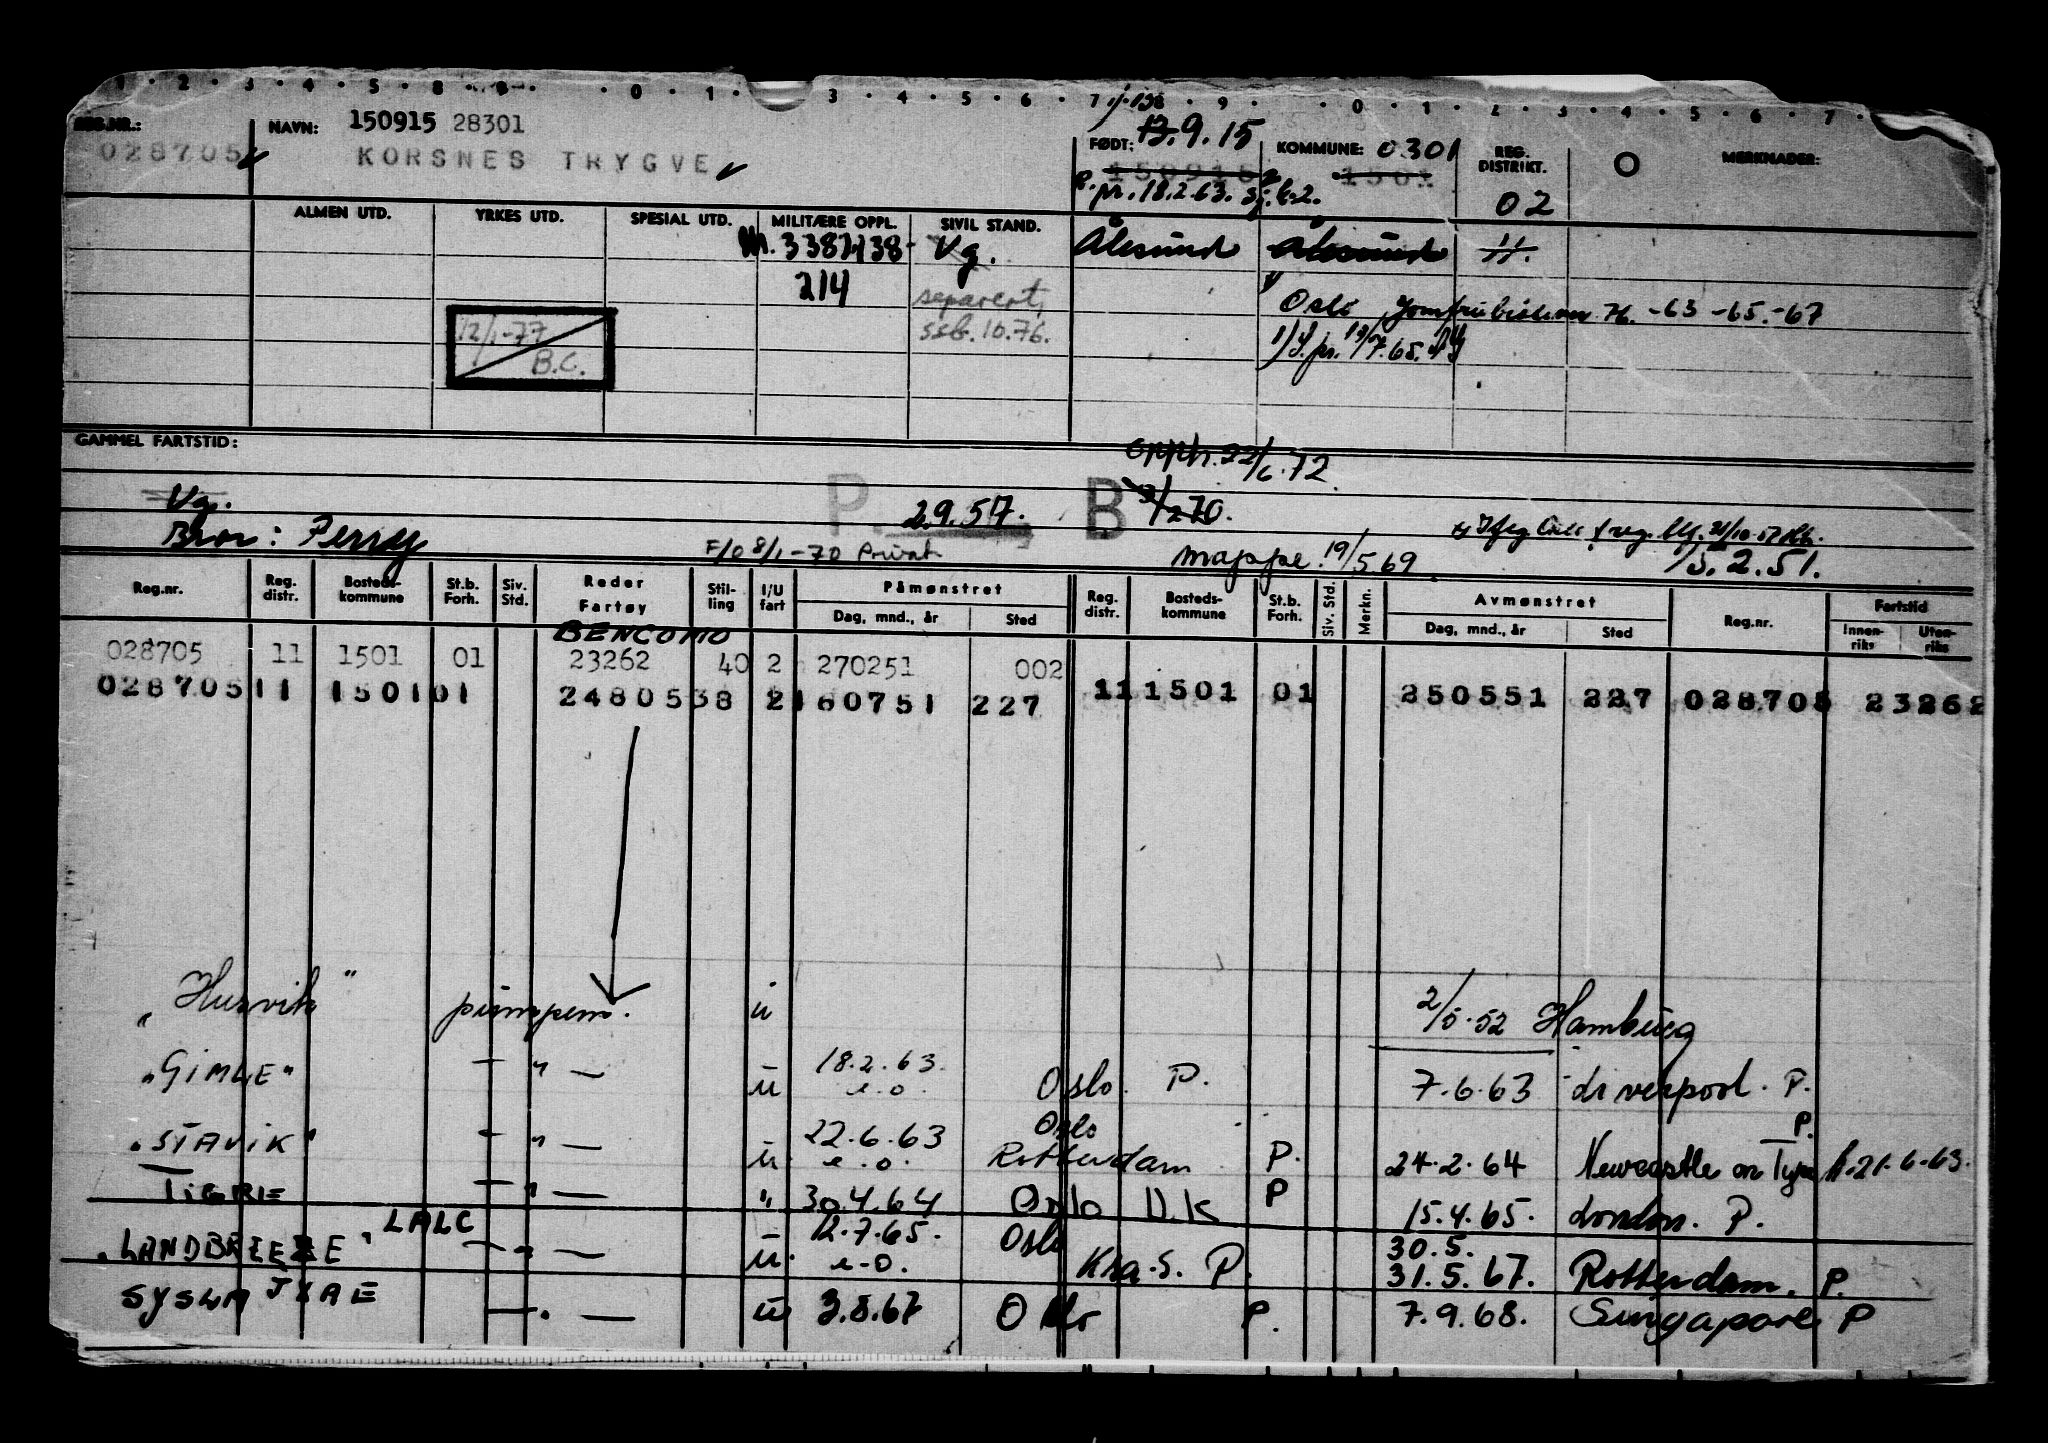 1 · 2 · 3 · 4 · 5 · 8 · 9 · · 0 · 1 · 3 · 4 · 5 · 6 · 7 · 8 · 9 · · 0 · 1 · 2 · 3 · 4 · 5 · 6 · 7 ·
REG.NR.: NAVN: 150915 28301 FØDT: 17.9.15 KOMMUNE: 0301 REG. DISTRIKT. O MERKNADER:
028705 KORSNES TRYGVE 150915 1501
pr. 18.2.63. 02
ALMEN UTD. YRKES UTD. SPESIAL UTD. MILITÆRE OPPL. SIVIL STAND.
Vg. Ålesund Ålesund 11.
214 separert,
Oslo 76. -63 -65.-67
12/1-77 ssb. 10.76.
B.C. pr. 19/7.65.
GAMMEL FARTSTID:
opph. 22/6.72
Vg. P 2.9.57. B 3/2 70.
Bror: Perry F/O 8/1-70 Privat mappe. 19/5 69 15.2.51.
Reg.nr. Reg. distr. Bosteds-kommune St.b. Forh. Siv. Std. Reder Fartøy Stil-ling I/U fart Påmønstret Reg. distr. Bosteds-kommune St.b. Forh. Siv. Std. Merkn. Avmønstret Reg.nr. Fartstid
Dag, mnd., år Sted Dag, mnd., år Sted Innen-riks Uten-riks
BENCOMO
028705 11 1501 01 23262 40 2 270251 002
028705 11 1501 01 24805 38 2 160751 227 11 1501 01 250551 227 028705 23262
"Husvik" pumpem. u 2/5.52 Hamburg
"GIMLE" — " — u 18.2.63. e.o. Oslo. P. 7.6.63 Liverpool. P.
"STAVIK" — " — u. 22.6.63 e.o. Oslo Rotterdam P. 24.2.64 Newcastle on Tyne P. h.21.6.63.
TIGRE — " — " 30.4.64 Oslo U.K P 15.4.65. London. P.
"LANDBREEZE" LALC — " — u. 12.7.65. e.o. Oslo Kra.S. P. 30.5. 31.5.67. Rotterdam. P.
SYSLA JXAE — . — u 3.8.67 Oslo P. 7.9.68. Singapore P